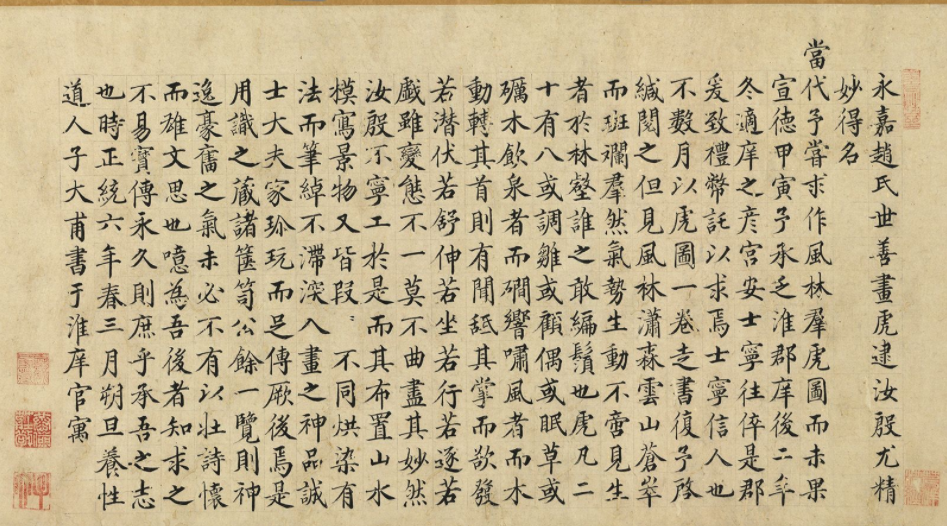 永嘉趙氏世善畫虎逮汝殷尤精
妙得名
當代予嘗求作風林羣虎圖而未果
宣德甲寅予承乏淮郡庠後二年
冬適庠之彦宫安士寧往倅是郡
爰致禮幣託以求焉士寧信人也
不数月以虎圖一卷走書復予啓
緘閱之但見風林瀟森雲山蒼崒
而班斕羣然氣勢生動不啻見生
者於林壑誰之敢編鬚也虎凡二
十有八或調雛或顧偶或眠草或
礪木飲泉者而磵響嘯風者而木
動轉其首則有聞舐其掌而欲發
若潛伏若舒伸若坐若行若逐若
戲雖變態不一莫不曲盡其妙然
汝殷不寧工於是而其布置山水
模寫景物又皆段〻不同烘染有
法而筆綽不滯深入畫之神品誠
士大夫家珎玩而足傳厥後焉是
用識之蔵諸篋笥公餘一覽則神
逸豪奮之氣未必不有以壮詩懷
而雄文思也噫為吾後者知求之
不易寳傳永久則庶乎承吾之志
也時正統六年春三月朔旦養性
道人子大甫書于淮庠官寓